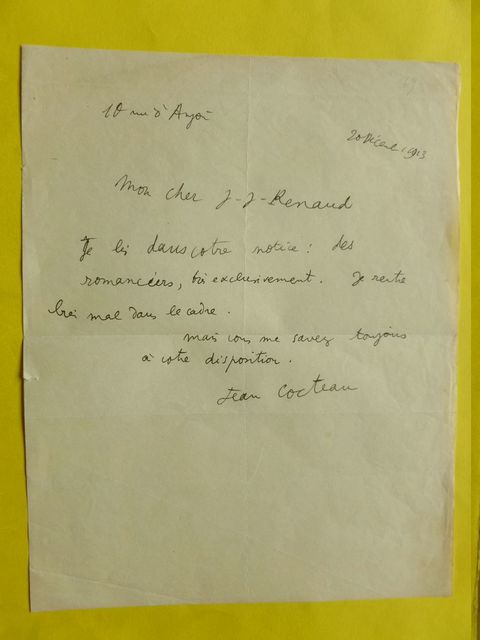 10 rue d'Anjou
20 Décemb 1913
Mon cher J-J-Renaud
Je lis dans votre notice : des
romanciers, très exclusivement. Je rentre
bien mal dans le cadre.
mais vous me savez toujours
à votre disposition.
Jean Cocteau